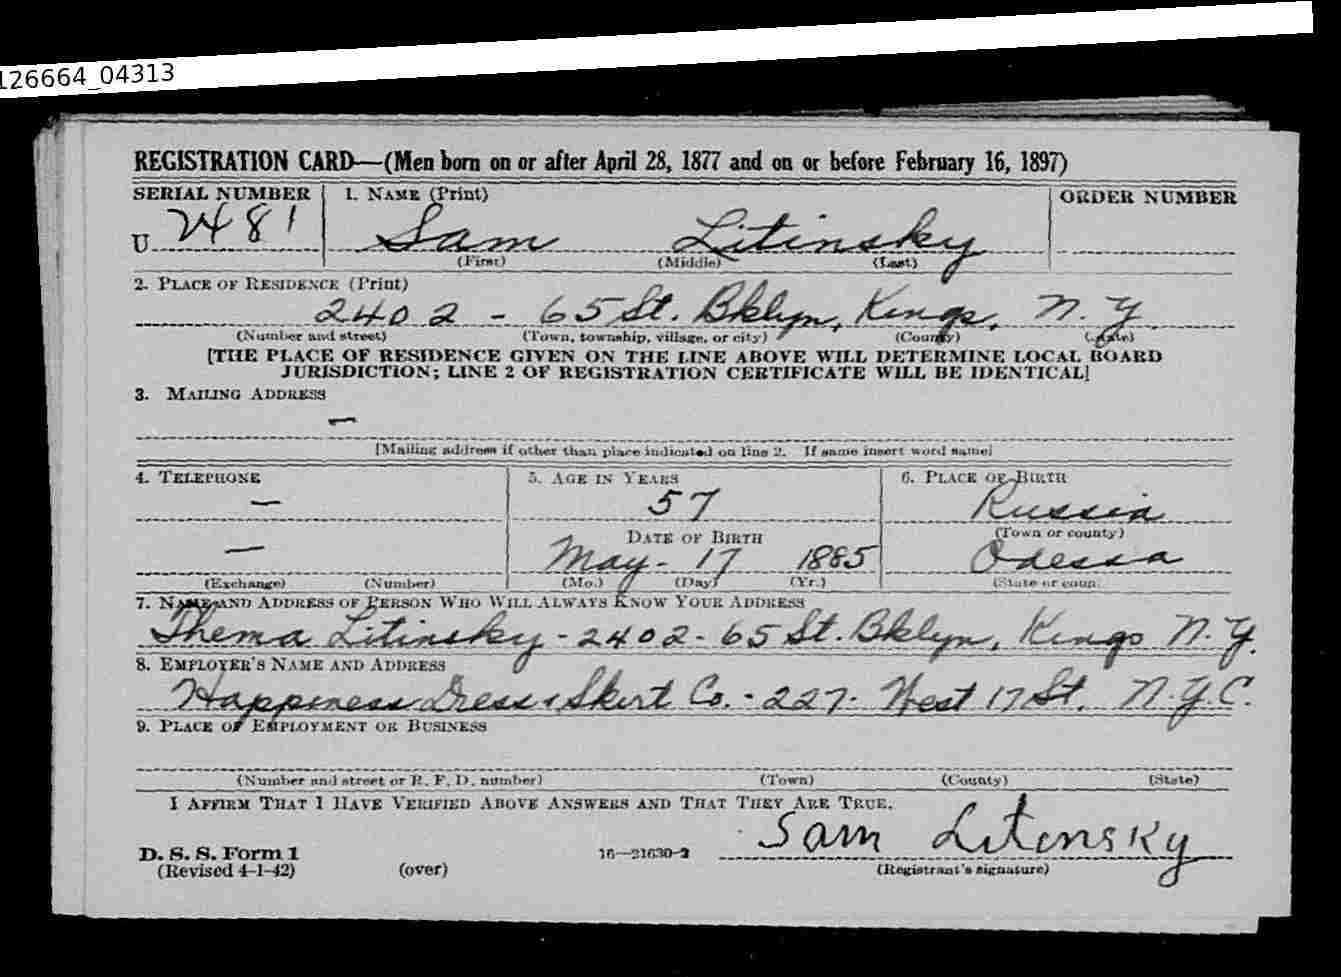 126664_04313
REGISTRATION CARD—(Men born on or after April 28, 1877 and on or before February 16, 1897)
SERIAL NUMBER 1. NAME (Print) ORDER NUMBER
U 2481 Sam Litinsky
(First) (Middle) (Last)
2. PLACE OF RESIDENCE (Print)
2402 - 65 St. Bklyn, Kings, N. Y.
(Number and street) (Town, township, village, or city) (County) (State)
[THE PLACE OF RESIDENCE GIVEN ON THE LINE ABOVE WILL DETERMINE LOCAL BOARD
JURISDICTION; LINE 2 OF REGISTRATION CERTIFICATE WILL BE IDENTICAL]
3. MAILING ADDRESS
—
[Mailing address if other than place indicated on line 2. If same insert word same]
4. TELEPHONE 5. AGE IN YEARS 6. PLACE OF BIRTH
— 57 Russia
DATE OF BIRTH (Town or county)
— May - 17 1885 Odessa
(Exchange) (Number) (Mo.) (Day) (Yr.) (State or coun
7. NAME AND ADDRESS OF PERSON WHO WILL ALWAYS KNOW YOUR ADDRESS
Thema Litinsky - 2402 - 65 St. Bklyn, Kings N. Y.
8. EMPLOYER'S NAME AND ADDRESS
Happiness Dress & Skirt Co. - 227 - West 17 St. N.Y.C.
9. PLACE OF EMPLOYMENT OR BUSINESS
(Number and street or R. F. D. number) (Town) (County) (State)
I AFFIRM THAT I HAVE VERIFIED ABOVE ANSWERS AND THAT THEY ARE TRUE.
Sam Litensky
D. S. S. Form 1 16—21630-2
(Revised 4-1-42) (over) (Registrant's signature)